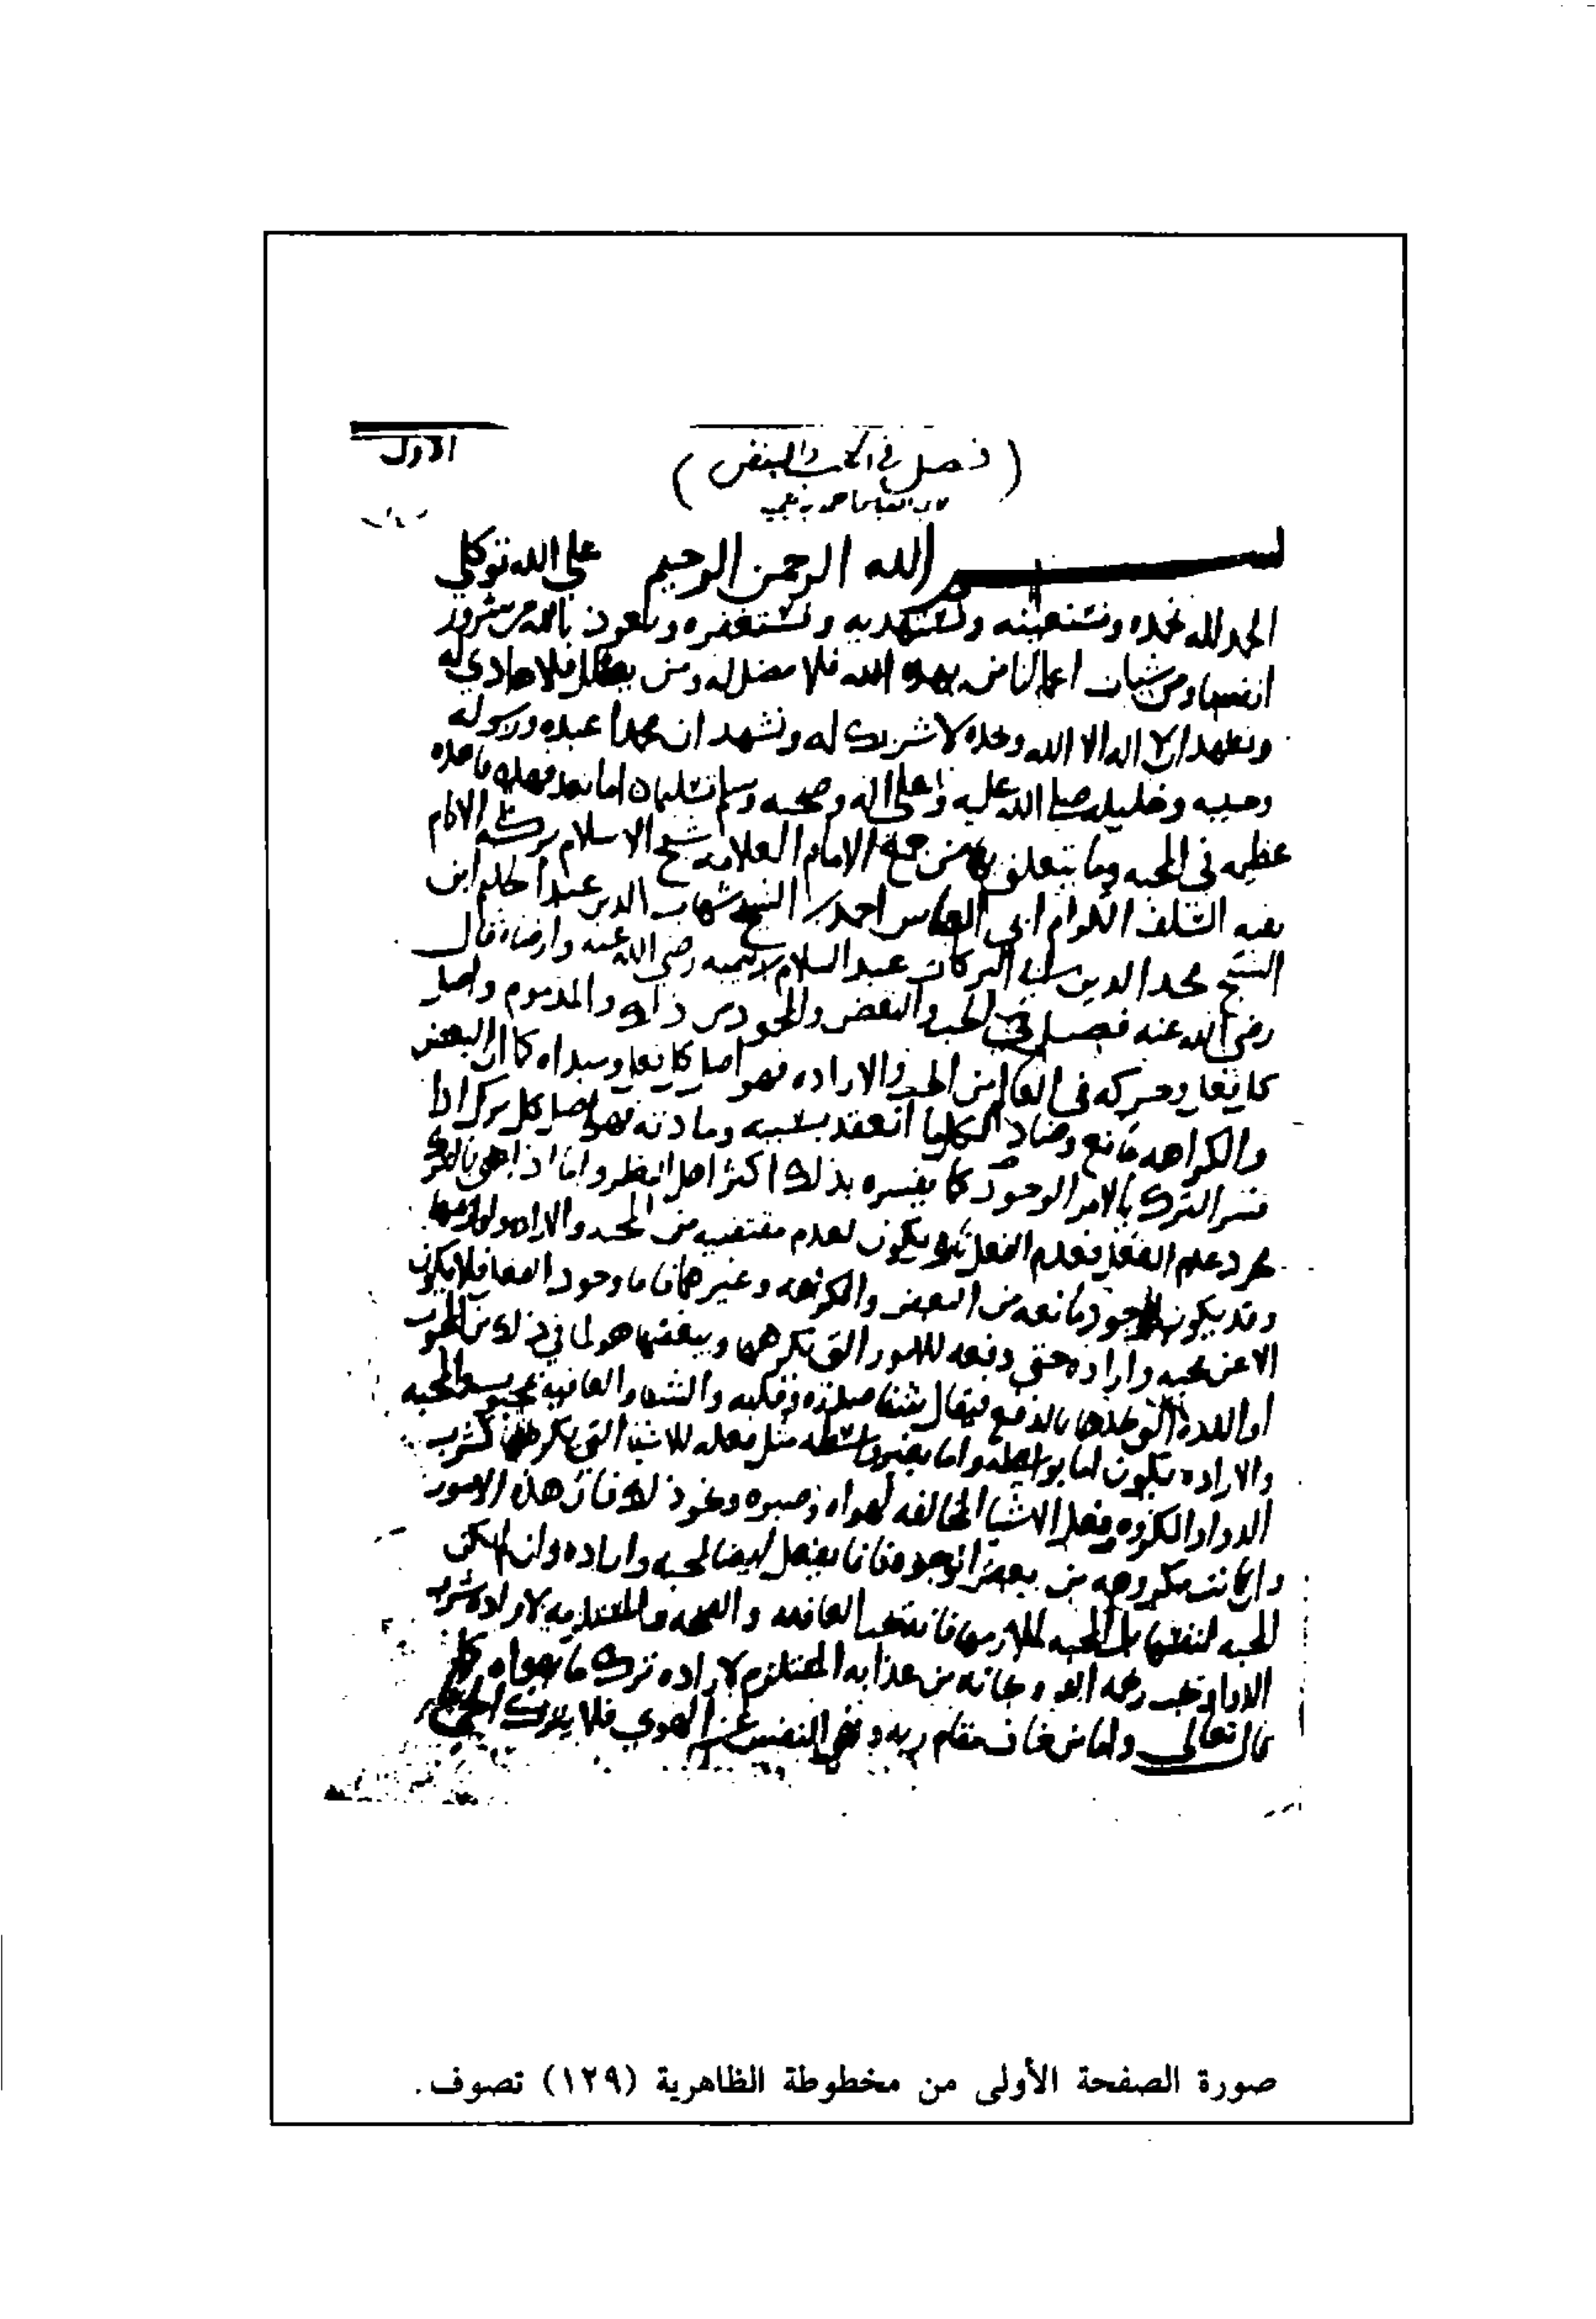 الاول
( فصل في الحب والبغض )
لابي العباس احمد بن تيميه
بسم الله الرحمن الرحيم على الله توكلي
الحمد لله نحمده ونستعينه ونستهديه ونستغفره ونعوذ بالله من شرور
انفسنا ومن سيات اعمالنا من يهده الله فلا مضل له ومن يضلل فلا هادي له
ونشهد ان لا اله الا الله وحده لا شريك له ونشهد ان محمدا عبده ورسوله
وحبيبه وخليله صلى الله عليه وعلى اله وصحبه وسلم تسليما اما بعد فهذه قاعده
عظيمه في المحبه وما يتعلق بها من جمع الامام العلامه شيخ الاسلام بركه الانام
بقيه السلف الكرام ابي العباس احمد بن الشيخ شهاب الدين عبد الحليم ابن
الشيخ مجد الدين ابي البركات عبد السلام بن تيميه رضي الله عنه وارضاه قال
رضي الله عنه فصل في الحب والبغض والمحمود من ذلك والمذموم واصل
كل فعل وحركه في العالم من الحب والاراده فهو اصل كل فعل ومبداه كما ان البغض
والكراهه مانع وصاد لكل ما انعقد بسببه ومادته فهو اصل كل ترك اذا
فسر الترك بالامر الوجودي كما يفسره بذلك اكثر اهل النظر واما اذا
مجرد عدم الفعل فعدم الفعل تاره يكون لعدم مقتضيه من المحبه والاراده ولوازمها
وقد يكون لوجود مانعه من البغض والكراهه وغيرهما فاما وجود الفعل فلا يكون
الا عن محبه واراده حتى دفعه للامور التي يكرهها ويبغضها هو لما في ذلك من المحبوب
او اللذه التي يجدها بالدفع فيقال شفا صدره وقلبه والشفا والعافيه محبوب والمحبه
والاراده تكون اما بواسطه واما بغير واسطه مثل فعله للاشيا التي يكرهها كشرب
الدوا والكروه وفعل الاشيا المخالفه لهواه وصبره ونحو ذلك فان هذه الامور
وان كانت مكروهه من بعض الوجوه فانما يفعل ايضا لمحبه واراده وان لم تكن
المحبه لنفسها بل المحبه لملازمها فانه يحب العافيه والصحه المستلزمه لاراده شرب
الدوا ويحب رحمه الله ونجاته من عذابه المستلزم لاراده ترك ما يهواه كما
قال تعالى واما من خاف مقام ربه ونهى النفس عن الهوى فلا يترك الحي
صورة الصفحة الأولى من مخطوطة الظاهرية (١٢٩) تصوف.